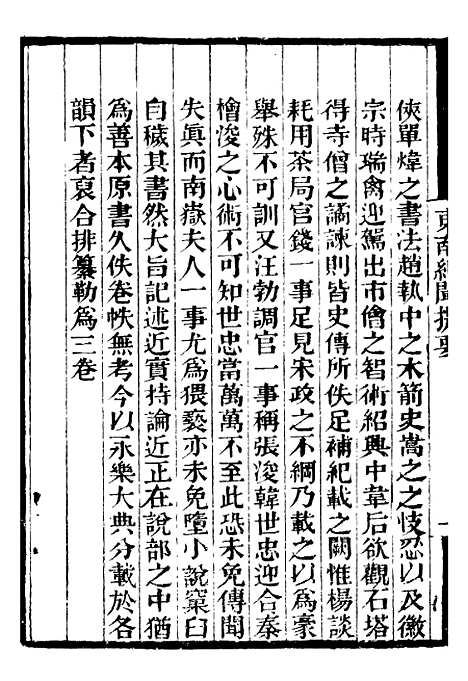 俠單煒之書法趙執中之木箭史嵩之之忮忍以及徽
宗時瑞禽迎駕出市儈之智術紹興中韋后欲觀石塔
得寺僧之譎諫則皆史傳所佚足補紀載之闕惟楊談
耗用茶局官錢一事足見宋政之不綱乃載之以為豪
舉殊不可訓又汪勃調官一事稱張浚韓世忠迎合秦
檜浚之心術不可知世忠當萬萬不至此恐未免傳聞
失眞而南嶽夫人一事尤為猥褻亦未免墮小說窠臼
自穢其書然大旨記述近實持論近正在說部之中猶
為善本原書久佚卷帙無考今以永樂大典分載於各
韻下者裒合排纂勒為三卷
東南紀聞提要
一